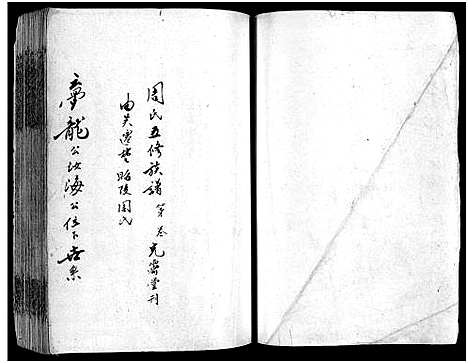 周氏五修族譜 第 卷 光霽堂刊
由吴遷楚昭陵周氏
夢龍公 海公位下世系